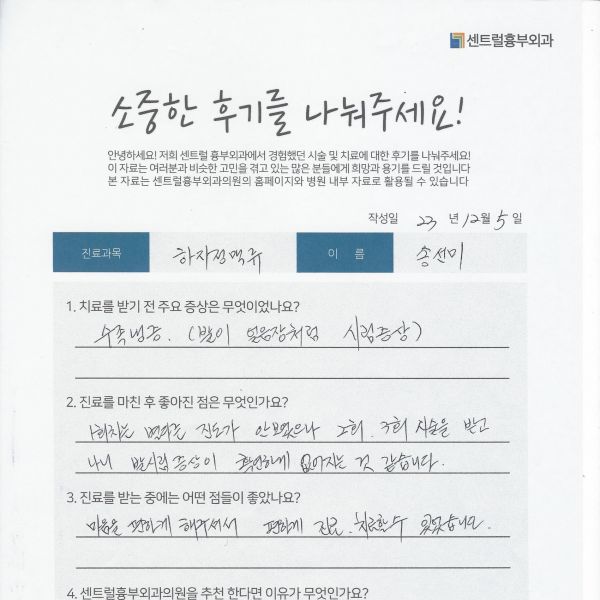 센트럴흉부외과
소중한 후기를 나눠주세요!
안녕하세요! 저희 센트럴 흉부외과에서 경험했던 시술 및 치료에 대한 후기를 나눠주세요!
이 자료는 여러분과 비슷한 고민을 겪고 있는 많은 분들에게 희망과 용기를 드릴 것입니다
본 자료는 센트럴흉부외과의원의 홈페이지와 병원 내부 자료로 활용될 수 있습니다
작성일 23 년 12월 5 일
진료과목 하지정맥류 이 름 송선미
1. 치료를 받기 전 주요 증상은 무엇이었나요?
수족냉증. (발이 얼음장처럼 시림증상)
2. 진료를 마친 후 좋아진 점은 무엇인가요?
1회차는 진도가 안보였으나 2회. 3회 시술을 받고
나니 발시림증상이 확연하게 없어지는 것 같습니다.
3. 진료를 받는 중에는 어떤 점들이 좋았나요?
마음을 편하게 해주셔서 편하게 진료. 치료할수 있었습니다.
4. 센트럴흉부외과의원을 추천 한다면 이유가 무엇인가요?